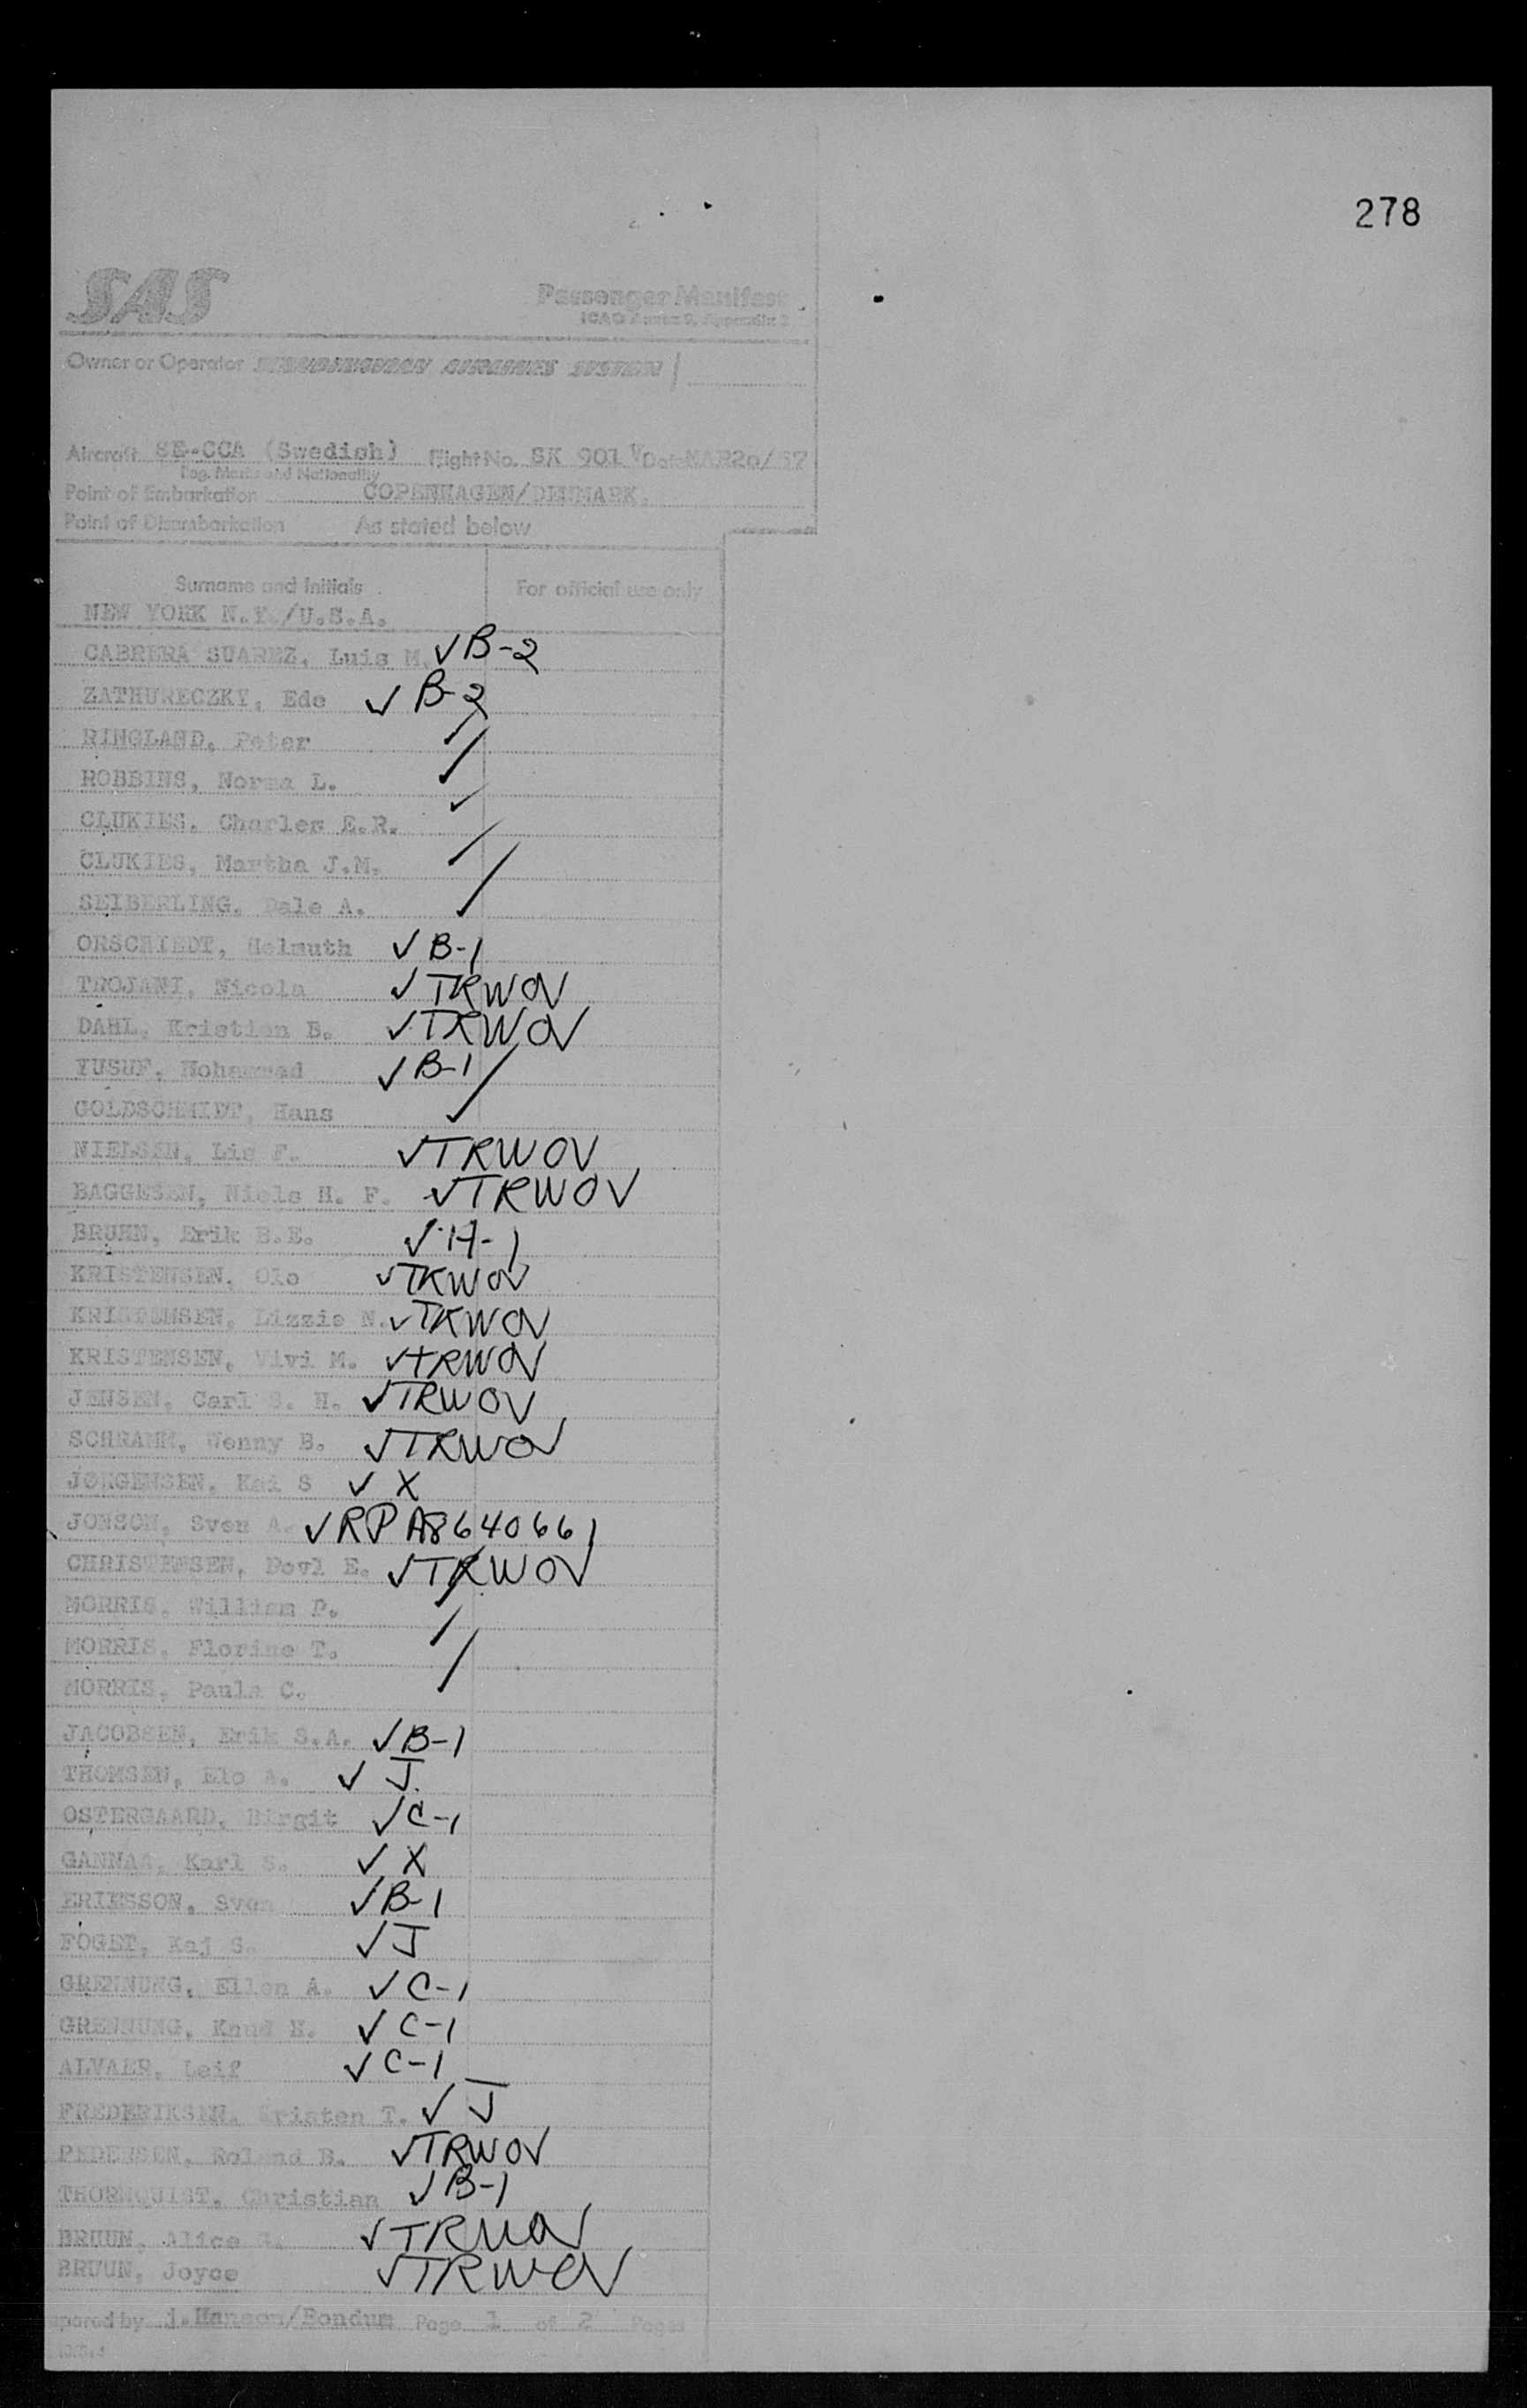 278
SAS
Passenger Manifest
ICAO Annex 9, Appendix 3
Owner or Operator SCANDINAVIAN AIRLINES SYSTEM
Aircraft SE-CCA (Swedish) Flight No. SK 901 Date MAR20/57
Reg. Marks and Nationality
Point of Embarkation COPENHAGEN/DENMARK.
Point of Disembarkation As stated below
Surname and Initials For official use only
NEW YORK N.Y./U.S.A.
CABRERA SUAREZ, Luis M. ✓ B-2
ZATHURECZKY, Ede ✓ B-2
RINGLAND, Peter
ROBBINS, Norma L.
CLUKIES, Charles E.R.
CLUKIES, Martha J.M.
SEIBERLING, Dale A.
ORSCHIEDT, Helmuth ✓ B-1
TROJANI, Nicola ✓ TRWOV
DAHL, Kristian B. ✓ TRWOV
YUSUF, Mohammad ✓ B-1
GOLDSCHMIDT, Hans
NIELSEN, Lis F. ✓ TRWOV
BAGGESEN, Niels H. F. ✓ TRWOV
BRUHN, Erik B.E. ✓ H-1
KRISTENSEN, Ole ✓ TRWOV
KRISTENSEN, Lizzie N. ✓ TRWOV
KRISTENSEN, Vivi M. ✓ TRWOV
JENSEN, Carl S. H. ✓ TRWOV
SCHRAMM, Wenny B. ✓ TRWOV
JORGENSEN, Kai S ✓ X
JONSON, Sven A. ✓ RP A8640661
CHRISTENSEN, Povl E. ✓ TRWOV
MORRIS, William P.
MORRIS, Florine T.
MORRIS, Paula C.
JACOBSEN, Erik S.A. ✓ B-1
THOMSEN, Elo A. ✓ J.
OSTERGAARD, Birgit ✓ C-1
GANNAA, Karl S. ✓ X
ERIKSSON, Sven ✓ B-1
FOGET, Kaj S. ✓ J
GRENNUNG, Ellen A. ✓ C-1
GRENNUNG, Knud H. ✓ C-1
ALVAER, Leif ✓ C-1
FREDERIKSEN, Kristen T. ✓ J
PEDERSEN, Roland B. ✓ TRWOV
THORNQUIST, Christian ✓ B-1
BRUUN, Alice ✓ TRWOV
BRUUN, Joyce ✓ TRWOV
Prepared by j.Hanson/Bondum Page 1 of 2 Pages